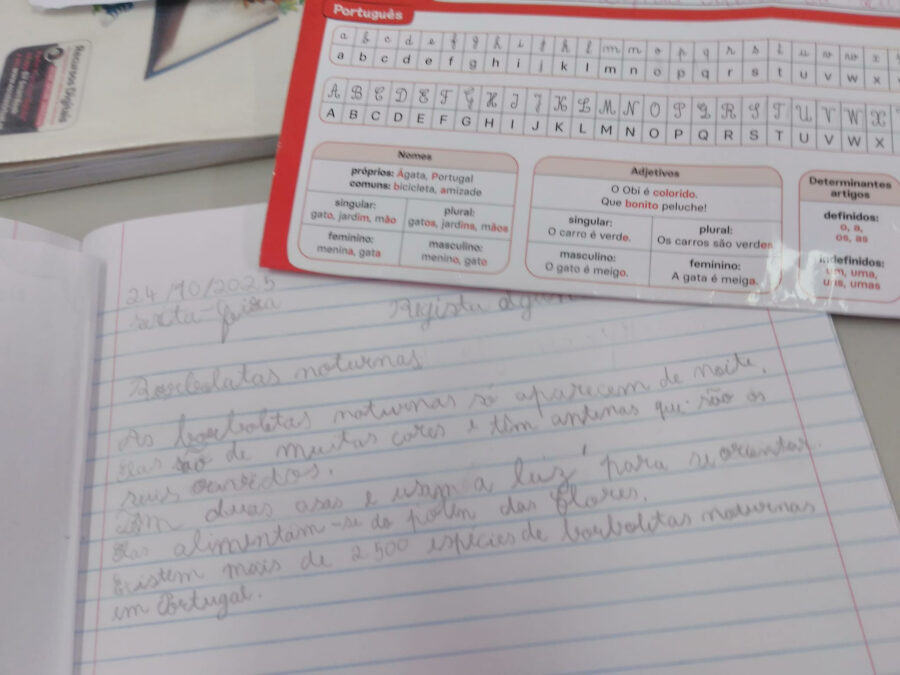 Português
a b c d e f g h i j k l m n o p q r s t u v w x
a b c d e f g h i j k l m n o p q r s t u v w x
A B C D E F G H I J K L M N O P Q R S T U V W X
A B C D E F G H I J K L M N O P Q R S T U V W X
Nomes
próprios: Ágata, Portugal
comuns: bicicleta, amizade
singular:
gato, jardim, mão
plural:
gatos, jardins, mãos
feminino:
menina, gata
masculino:
menino, gato
Adjetivos
O Obi é colorido.
Que bonito peluche!
singular:
O carro é verde.
plural:
Os carros são verdes
masculino:
O gato é meigo.
feminino:
A gata é meiga.
Determinantes
artigos
definidos:
o, a,
os, as
indefinidos:
um, uma,
uns, umas
Recursos Digitais
24/10/2025
sexta-feira
Regista
Borbolatas noturnas
As borboletas noturnas só aparecem de noite.
Elas são de muitas cores e têm antenas que são os
seus ouvidos.
Têm duas asas e usam a luz para se orientar.
Elas alimentam-se do pólen das flores.
Existem mais de 2 500 espécies de borboletas noturnas
em Portugal.